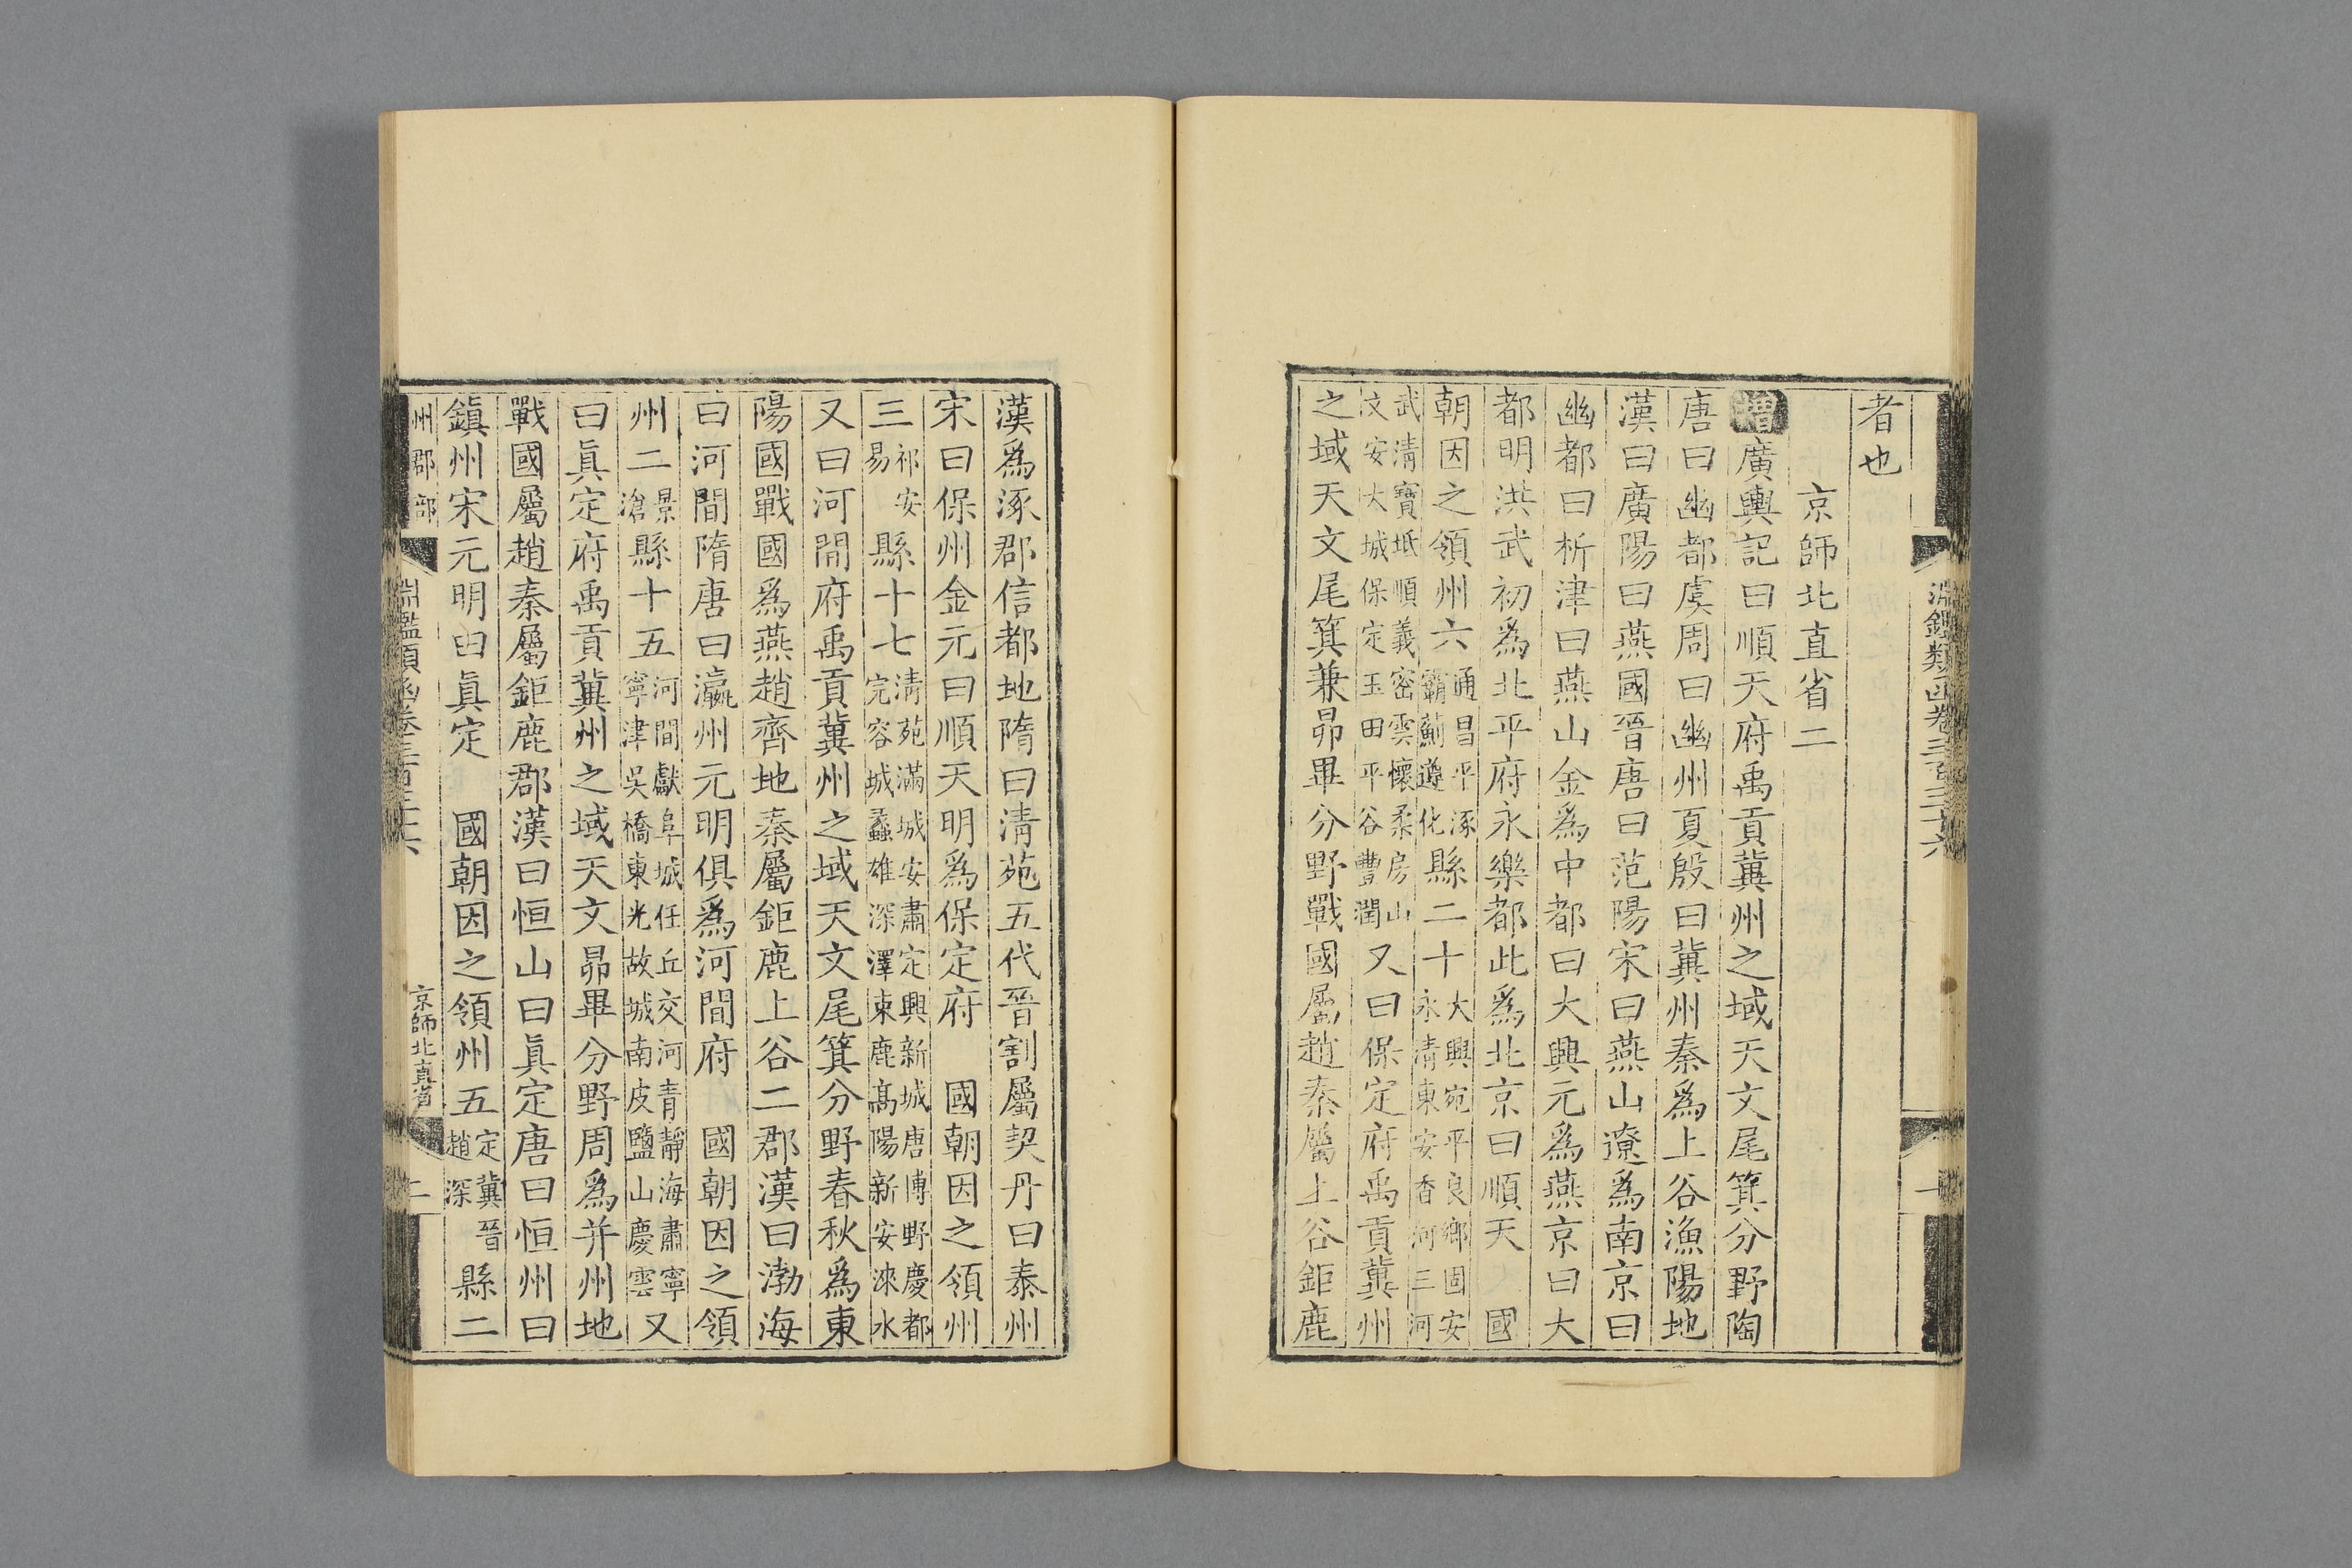 者也
京師北直省二
增廣輿記曰順天府禹貢冀州之域天文尾箕分野陶
唐曰幽都虞周曰幽州夏殷曰冀州秦爲上谷漁陽地
漢曰廣陽曰燕國晉唐曰范陽宋曰燕山遼爲南京曰
幽都曰析津曰燕山金爲中都曰大興元爲燕京曰大
都明洪武初爲北平府永樂都此爲北京曰順天 國
朝因之領州六通昌平涿霸薊遵化縣二十大興宛平良鄉固安永清東安香河三河
武清寶坻順義密雲懷柔房山文安大城保定玉田平谷豐潤又曰保定府禹貢冀州
之域天文尾箕兼昴畢分野戰國屬趙秦屬上谷鉅鹿
淵鑑類函卷三百三十六
一
漢爲涿郡信都地隋曰清苑五代晉割屬契丹曰泰州
宋曰保州金元曰順天明爲保定府 國朝因之領州
三祁安易縣十七清苑滿城安肅定興新城唐博野慶都完容城蠡雄深澤束鹿高陽新安淶水
又曰河間府禹貢冀州之域天文尾箕分野春秋爲東
陽國戰國爲燕趙齊地秦屬鉅鹿上谷二郡漢曰渤海
曰河間隋唐曰瀛州元明俱爲河間府 國朝因之領
州二景滄縣十五河間獻阜城任丘交河青靜海肅寧寧津吳橋東光故城南皮鹽山慶雲又
曰眞定府禹貢冀州之域天文昴畢分野周爲并州地
戰國屬趙秦屬鉅鹿郡漢曰恒山曰眞定唐曰恒州曰
鎮州宋元明曰眞定 國朝因之領州五定冀晉趙深縣二
州郡部
淵鑑類函卷三百三十六
京師北直省
二